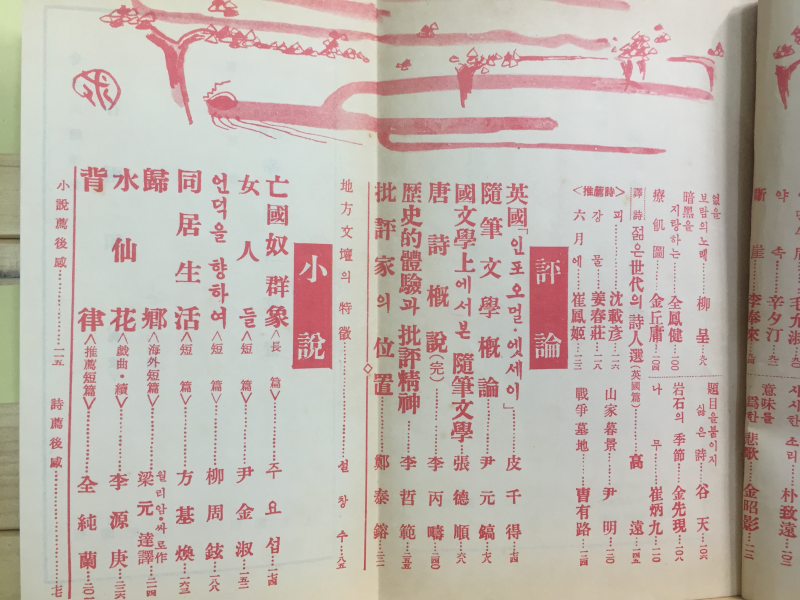 斷崖……李春來
약속……辛夕汀
爲한 悲歌……金昭影
意味를
지시한 소리……朴致遠
얼을
보람의 노래……柳呈
暗黑을
지탕하는……全鳳健
療飢圖……金丘庸
題目을붙이지
싫은詩……谷天……一〇六
岩石의 季節……金先現……一〇八
나무……崔炳九
譯詩 젊은世代의 詩人選(英國篇)……高遠
<推薦詩>
피……沈載彦……一二六
강물……姜春莊……一二八
六月에……崔鳳姬……一二三
山家暮景……尹明
戰爭墓地……曺有路……一二四
評論
英國「인포오멀·엣세이」……皮千得……一四
隨筆文學槪論……尹元鎬
國文學上에서본 隨筆文學……張德順
唐詩槪說(完)……李丙疇
歷史的體驗과 批評精神……李哲範
批評家의 位置……鄭泰鎔
地方文壇의 特徵……설창수……八五
小說
亡國奴群象<長篇>……주요섭
女人들<短篇>……尹金淑……一五二
언덕을 향하여<短篇>……柳周鉉……一八八
同居生活<短篇>……方基煥……一六三
歸鄕<海外短篇>……월리암·싸로作 梁元達譯……二一四
水仙花<戱曲·續>……李源庚
背律<推薦短篇>……全純蘭
小說薦後感……二一五
詩薦後感